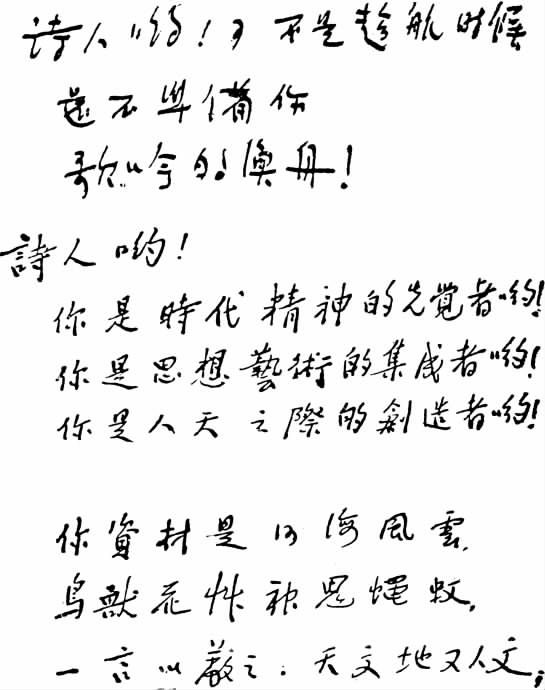 詩人哟!可不是趁航时候
還不準備你
歌吟的漁舟!
詩人哟!
你是時代精神的先覺者哟!
你是思想藝術的集成者哟!
你是人天之際的創造者哟!
你資材是河海風雲,
鳥獸花草神鬼蠅蚊,
一言以蔽之:天文地文人文;